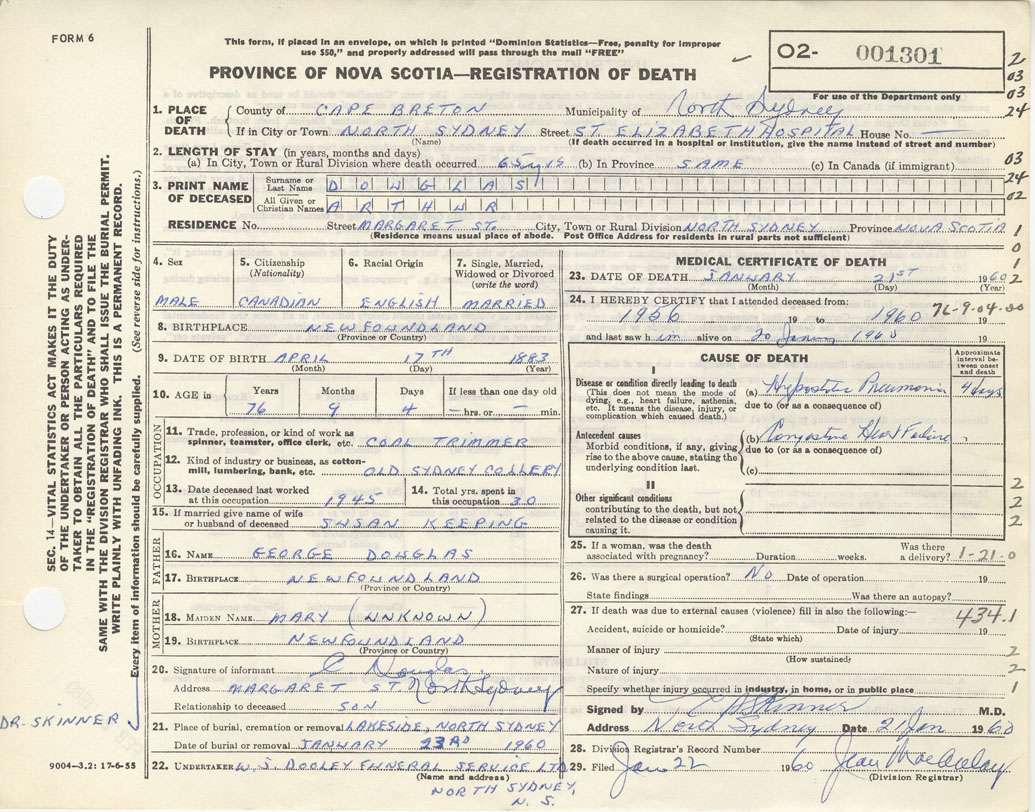 FORM 6
This form, if placed in an envelope, on which is printed "Dominion Statistics—Free, penalty for improper
use $50," and properly addressed will pass through the mail "FREE"
PROVINCE OF NOVA SCOTIA—REGISTRATION OF DEATH
O2- 001301
For use of the Department only
2
03
03
24
1. PLACE OF DEATH
County of CAPE BRETON Municipality of North Sydney
If in City or Town NORTH SYDNEY Street ST. ELIZABETH HOSPITAL House No. —
(Name) (If death occurred in a hospital or institution, give the name instead of street and number)
2. LENGTH OF STAY (in years, months and days)
(a) In City, Town or Rural Division where death occurred 65 yrs (b) In Province SAME (c) In Canada (if immigrant)
03
24
02
3. PRINT NAME OF DECEASED
Surname or Last Name DOUGLAS
All Given or Christian Names ARTHUR
RESIDENCE No. Street MARGARET ST. City, Town or Rural Division NORTH SYDNEY Province NOVA SCOTIA
(Residence means usual place of abode. Post Office Address for residents in rural parts not sufficient)
1
0
1
2
4. Sex
MALE
5. Citizenship
(Nationality)
CANADIAN
6. Racial Origin
ENGLISH
7. Single, Married,
Widowed or Divorced
(write the word)
MARRIED
8. BIRTHPLACE NEWFOUNDLAND
(Province or Country)
9. DATE OF BIRTH APRIL 17TH 1883
(Month) (Day) (Year)
10. AGE in
Years Months Days If less than one day old
76 9 4 — hrs. or — min.
OCCUPATION
11. Trade, profession, or kind of work as
spinner, teamster, office clerk, etc. COAL TRIMMER
12. Kind of industry or business, as cotton-
mill, lumbering, bank, etc. OLD SYDNEY COLLERY
13. Date deceased last worked
at this occupation 1945
14. Total yrs. spent in
this occupation 30
15. If married give name of wife
or husband of deceased SUSAN KEEPING
FATHER
16. NAME GEORGE DOUGLAS
17. BIRTHPLACE NEWFOUNDLAND
(Province or Country)
MOTHER
18. MAIDEN NAME MARY (UNKNOWN)
19. BIRTHPLACE NEWFOUNDLAND
(Province or Country)
20. Signature of informant C Douglas
Address MARGARET ST. North Sydney
Relationship to deceased SON
21. Place of burial, cremation or removal LAKESIDE, NORTH SYDNEY
Date of burial or removal JANUARY 23RD 1960
22. UNDERTAKER W. J. DOOLEY FUNERAL SERVICE LTD
(Name and address)
NORTH SYDNEY,
N. S.
MEDICAL CERTIFICATE OF DEATH
23. DATE OF DEATH JANUARY 21ST 1960
(Month) (Day) (Year)
24. I HEREBY CERTIFY that I attended deceased from:
1956 19 to 1960 19
76-9-04-20
and last saw him alive on 20 January 1960 19
CAUSE OF DEATH
Approximate interval between onset and death
I
Disease or condition directly leading to death
(This does not mean the mode of
dying, e.g., heart failure, asthenia,
etc. It means the disease, injury, or
complication which caused death.)
(a) Hypostatic Pneumonia 4 days
due to (or as a consequence of)
Antecedent causes
Morbid conditions, if any, giving
rise to the above cause, stating the
underlying condition last.
(b) Congestive Heart Failure
due to (or as a consequence of)
(c)
II
Other significant conditions
contributing to the death, but not
related to the disease or condition
causing it.
2
2
2
25. If a woman, was the death
associated with pregnancy? Duration weeks. Was there
a delivery? 1-21.0
26. Was there a surgical operation? No Date of operation 19
State findings Was there an autopsy?
27. If death was due to external causes (violence) fill in also the following:—
434.1
Accident, suicide or homicide? Date of injury 19
(State which)
Manner of injury 2
(How sustained)
Nature of injury 2
Specify whether injury occurred in industry, in home, or in public place 1
Signed by Skinner M.D.
Address North Sydney Date 21 Jan 1960
28. Division Registrar's Record Number
29. Filed Jan 22 1960 Jean MacAulay
(Division Registrar)
SEC. 14—VITAL STATISTICS ACT MAKES IT THE DUTY
OF THE UNDERTAKER OR PERSON ACTING AS UNDER-
TAKER TO OBTAIN ALL THE PARTICULARS REQUIRED
IN THE "REGISTRATION OF DEATH" AND TO FILE THE
SAME WITH THE DIVISION REGISTRAR WHO SHALL ISSUE THE BURIAL PERMIT.
WRITE PLAINLY WITH UNFADING INK. THIS IS A PERMANENT RECORD.
Every item of information should be carefully supplied. (See reverse side for instructions.)
DR. SKINNER
9004—3.2: 17-6-55